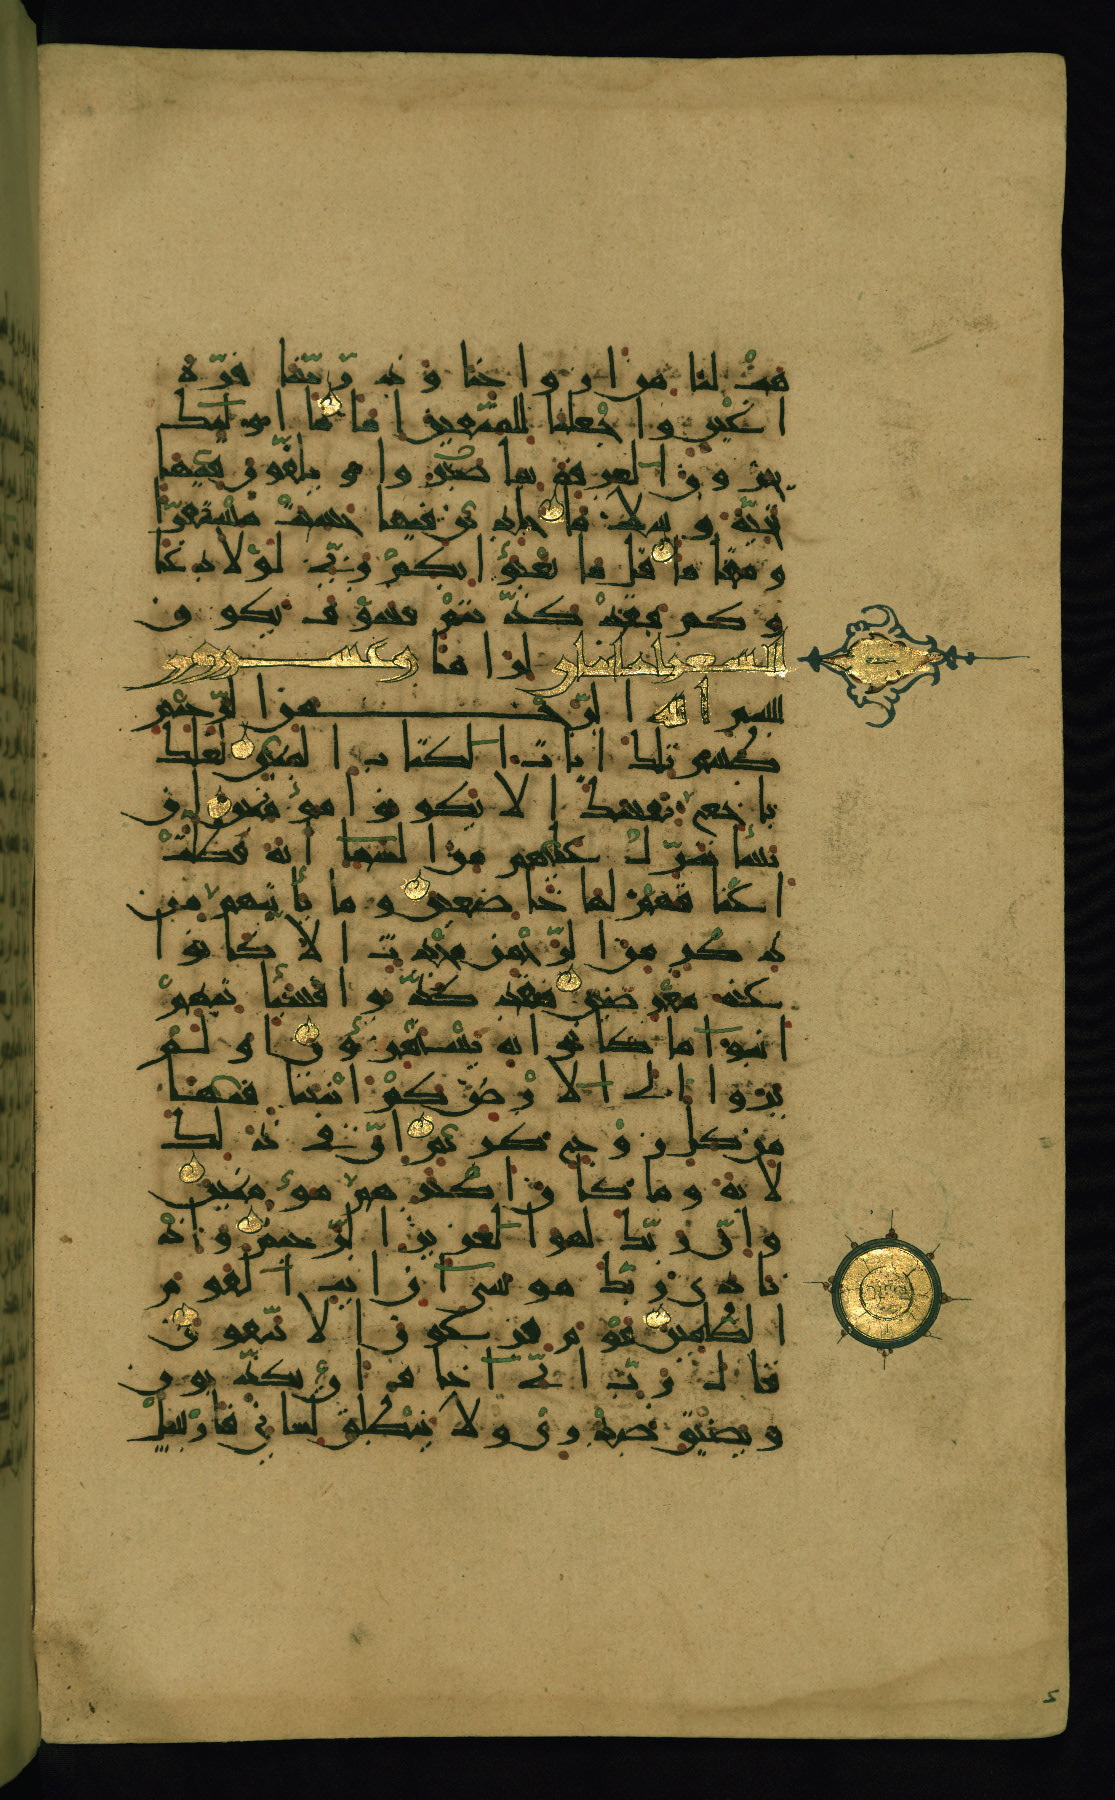 هب لنا من ازواجنا وذريتنا قرة
اعين واجعلنا للمتقين اماما اولئك
يجزون الغرفة بما صبروا ويلقون فيها
تحية وسلاما خالدين فيها حسنت مستقرا
ومقاما قل ما يعبؤا بكم ربي لولا دعا
وكم فقد كذبتم فسوف يكون
لزاما
بسم الله الرحمن الرحيم
طسم تلك ايات الكتاب المبين لعلك
باخع نفسك الا يكونوا مؤمنين ان
نشا ننزل عليهم من السما اية فظلت
اعناقهم لها خاضعين وما ياتيهم من
ذكر من الرحمن محدث الا كانوا
عنه معرضين فقد كذبوا فسياتيهم
انبوا ما كانوا به يستهزؤن اولم
يروا الى الارض كم انبتنا فيها
من كل زوج كريم ان في ذلك
لاية وما كان اكثرهم مؤمنين
وان ربك لهو العزيز الرحيم واذ
نادى ربك موسى ان ايت القوم
الظلمين قوم فرعون الا يتقون
قال رب اني اخاف ان يكذبون
ويضيق صدري ولا ينطلق لساني فارسل